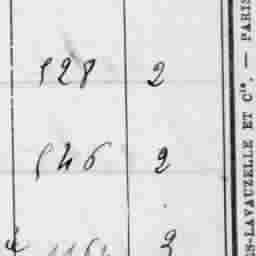 528 2
546 2
3
ES-LAVAUZELLE ET Cie. — PARIS